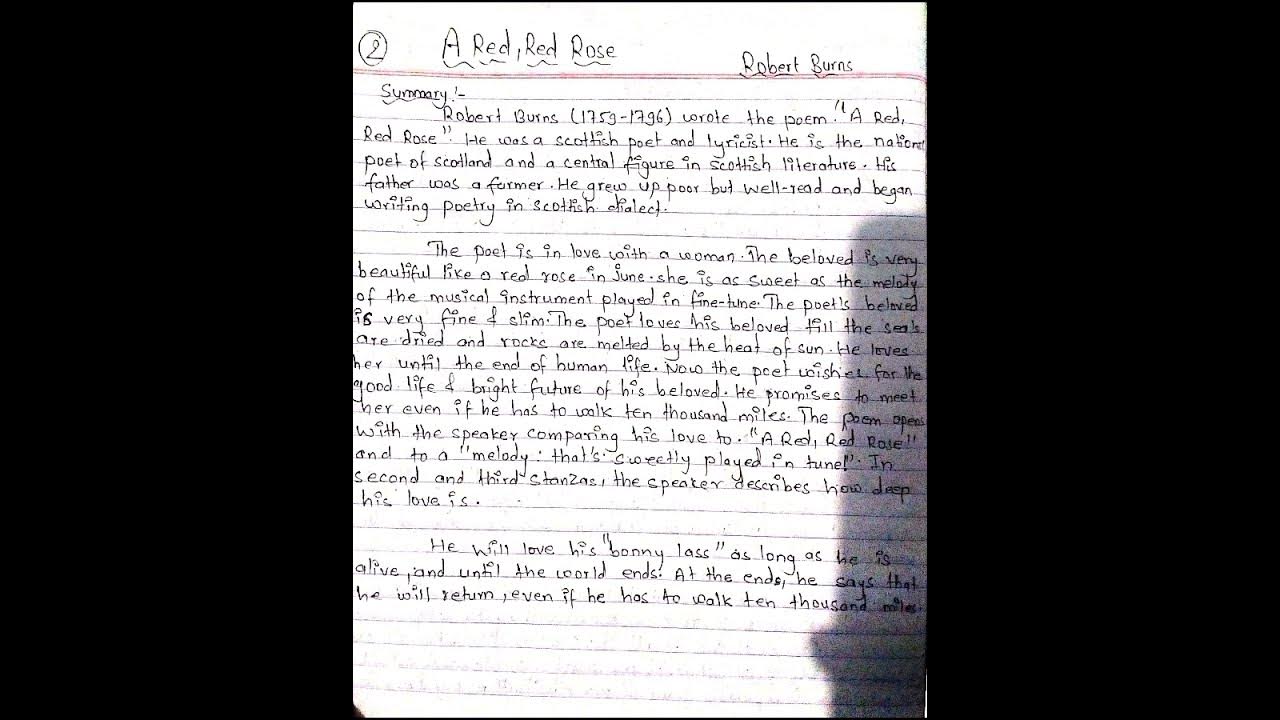 2 A Red, Red Rose
Robert Burns
Summary:-
Robert Burns (1759-1796) wrote the poem "A Red,
Red Rose". He was a scottish poet and lyricist. He is the national
poet of scotland and a central figure in scottish literature. His
father was a farmer. He grew up poor but well-read and began
writing poetry in scottish dialect.
The poet is in love with a woman. The beloved is very
beautiful like a red rose in June. she is as sweet as the melody
of the musical instrument played in fine-tune. The poet's beloved
is very fine & slim. The poet loves his beloved till the sea's
are dried and rocks are melted by the heat of sun. He loves
her until the end of human life. Now the poet wishes for the
good life & bright future of his beloved. He promises to meet
her even if he has to walk ten thousand miles. The poem opens
with the speaker comparing his love to. "A Red, Red Rose"
and to a "melody. that's sweetly played in tune!". In
second and third stanzas, the speaker describes how deep
his love is.
He will love his "bonny lass" as long as he is
alive, and until the world ends. At the ends, he says that
he will return, even if he has to walk ten thousand miles